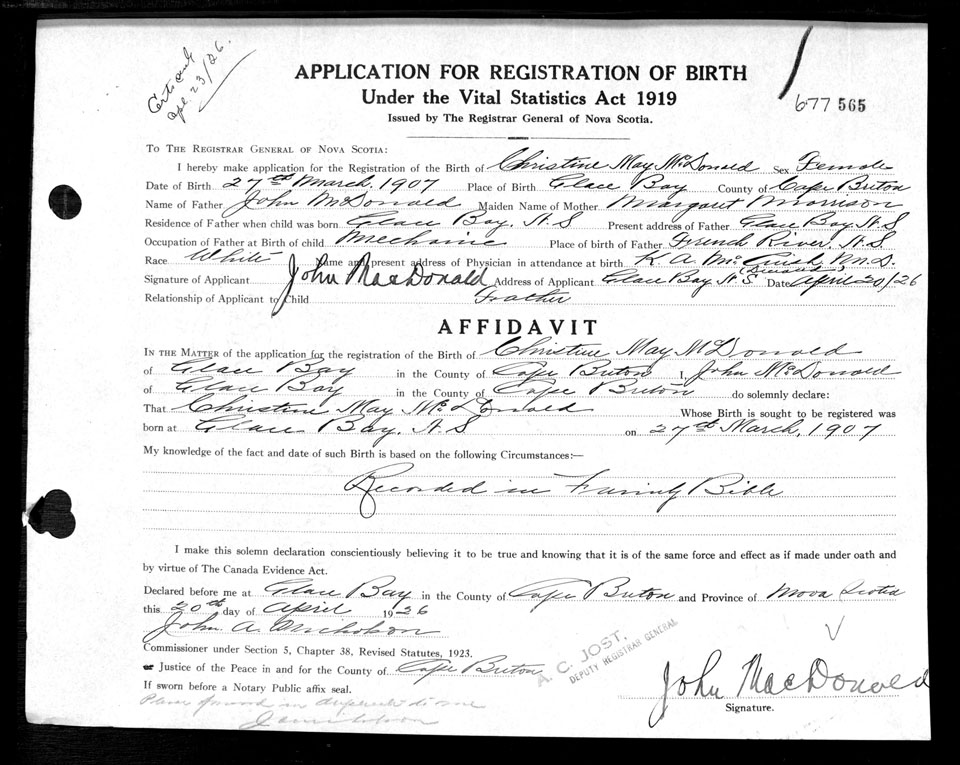 Certs only
Apl 23/26.
APPLICATION FOR REGISTRATION OF BIRTH
Under the Vital Statistics Act 1919
Issued by The Registrar General of Nova Scotia.
677 565
TO THE REGISTRAR GENERAL OF NOVA SCOTIA:
I hereby make application for the Registration of the Birth of Christine May McDonald Sex Female
Date of Birth 27th March, 1907 Place of Birth Glace Bay County of Cape Briton
Name of Father John McDonald Maiden Name of Mother Margaret Morrison
Residence of Father when child was born Glace Bay, N.S Present address of Father Glace Bay N.S
Occupation of Father at Birth of child Mechanic Place of birth of Father French River, N.S
Race White Name and present address of Physician in attendance at birth K. A. Mc M.D.
Signature of Applicant John MacDonald Address of Applicant Glace Bay N S Date April 20/26
Relationship of Applicant to Child Father
AFFIDAVIT
IN THE MATTER of the application for the registration of the Birth of Christine May McDonald
of Glace Bay in the County of Cape Briton I, John McDonald
of Glace Bay in the County of Cape Briton do solemnly declare:
That Christine May McDonald Whose Birth is sought to be registered was
born at Glace Bay, N.S on 27th March, 1907
My knowledge of the fact and date of such Birth is based on the following Circumstances:—
Recorded in Family Bible
I make this solemn declaration conscientiously believing it to be true and knowing that it is of the same force and effect as if made under oath and
by virtue of The Canada Evidence Act.
Declared before me at Glace Bay in the County of Cape Briton and Province of Nova Scotia
this 20th day of April 1926
John A. Nicholson
Commissioner under Section 5, Chapter 38, Revised Statutes, 1923.
or Justice of the Peace in and for the County of Cape Briton
A. C. JOST,
DEPUTY REGISTRAR GENERAL
If sworn before a Notary Public affix seal.
John MacDonald
Signature.